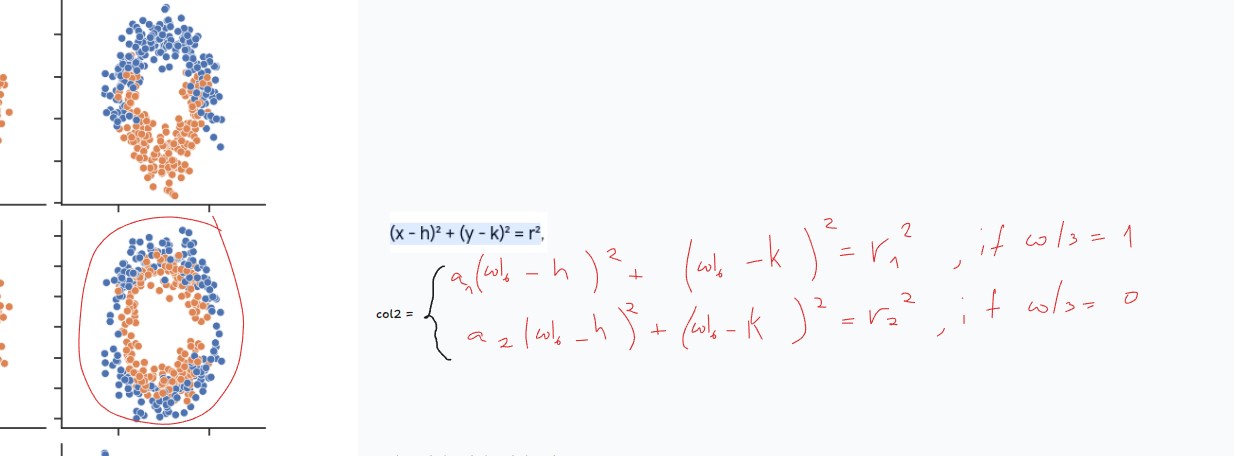 (x - h)² + (y - k)² = r²,
a₁(col₆ - h)² + (col₆ - k)² = r₁², if col3 = 1
col2 =
a₂(col₆ - h)² + (col₆ - k)² = r₂², if col3 = 0